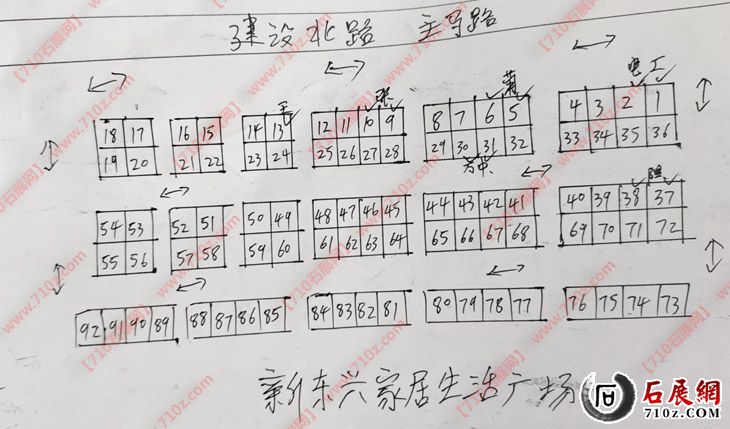 建设北路 主导路
电 工
黄
张
毛
18 17 16 15 14 13 12 11 10 9 8 7 6 5 4 3 2 1
19 20 21 22 23 24 25 26 27 28 29 30 31 32 33 34 35 36
54 53 52 51 50 49 48 47 46 45 44 43 42 41 40 39 38 37
55 56 57 58 59 60 61 62 63 64 65 66 67 68 69 70 71 72
92 91 90 89 88 87 86 85 84 83 82 81 80 79 78 77 76 75 74 73
新东兴家居生活广场
石展網
710z.com
【710石展网】
www.710z.com